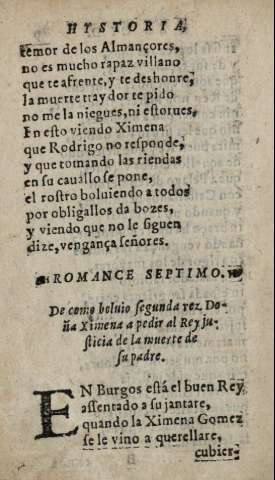 HYSTORIA
temor de los Almançores,
no es mucho rapaz villano
que te afrente, y te deshonre,
la muerte traydor te pido
no me la niegues, ni estorues,
En esto viendo Ximena
que Rodrigo no responde,
y que tomando las riendas
en su cauallo se pone,
el rostro boluiendo a todos
por obligallos da bozes,
y viendo que no le siguen
dize, vengança señores.
ROMANCE SEPTIMO.
De como boluio segunda vez Do-
ña Ximena a pedir al Rey ju-
sticia de la muerte de
su padre.
EN Burgos está el buen Rey
assentado a su jantare,
quando la Ximena Gomez
se le vino a querellare,
cubier-